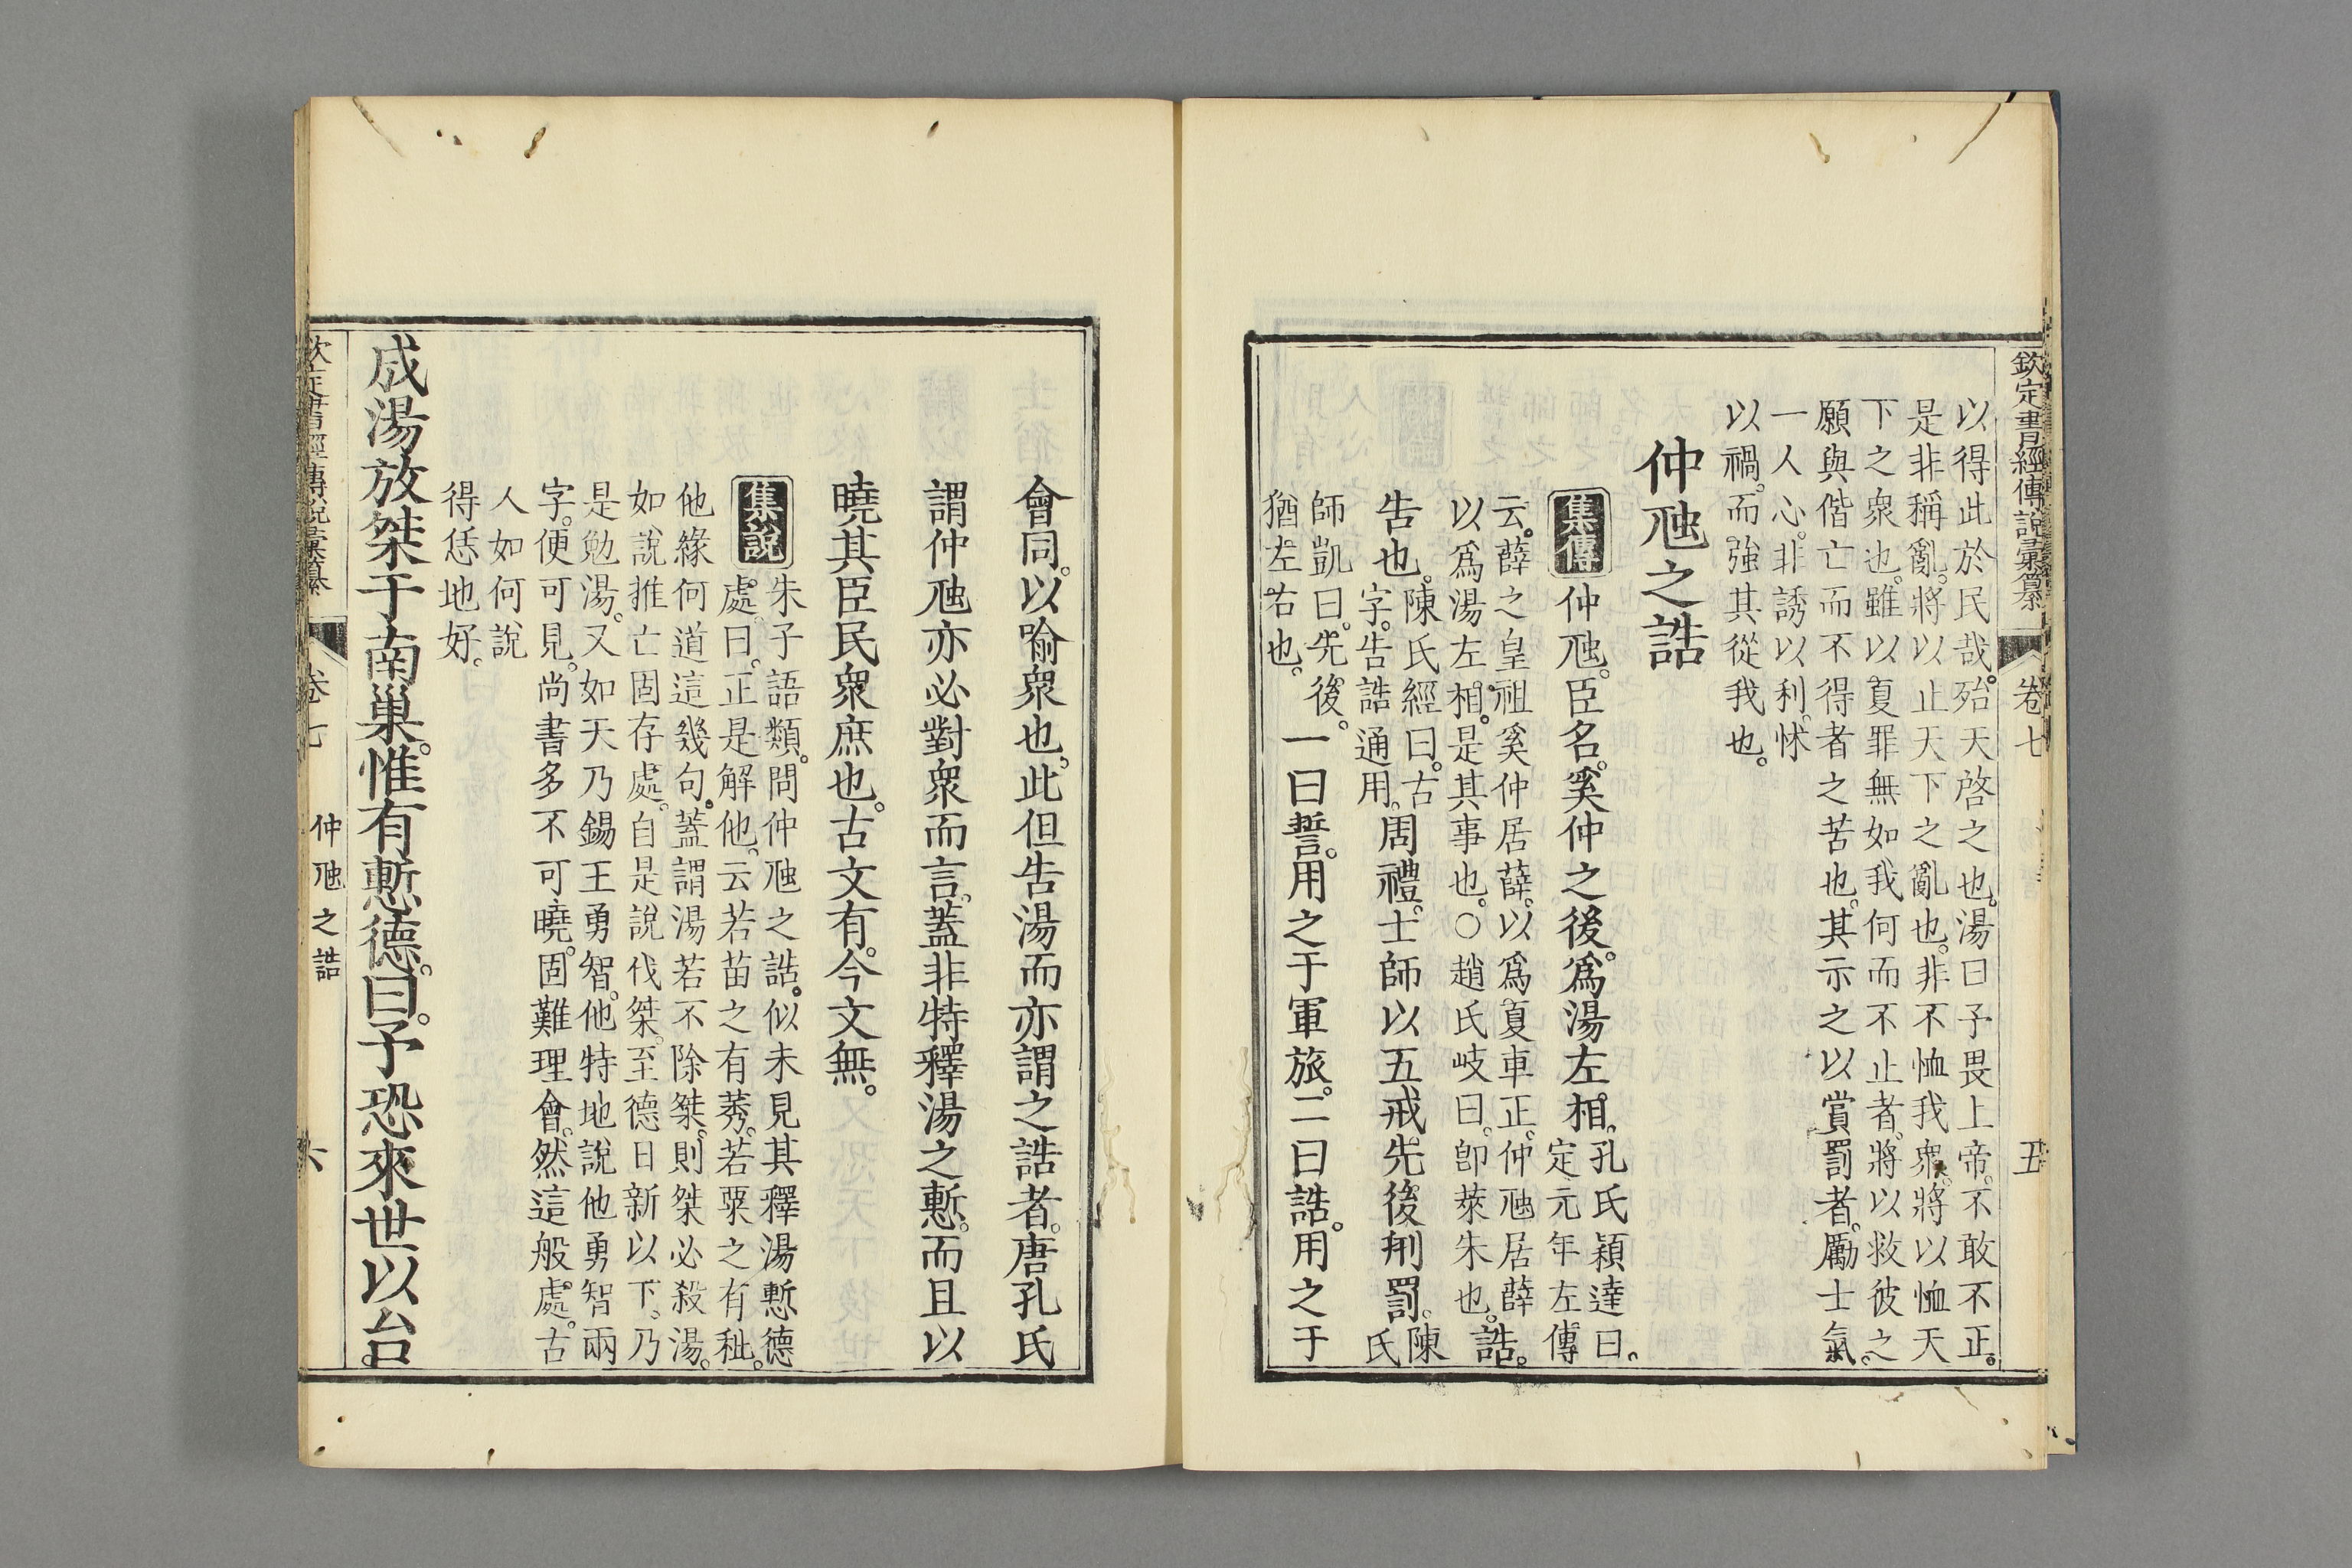 欽定書經傳說彙纂 卷七 五
以得此於民哉。殆天啓之也。湯曰予畏上帝。不敢不正。
是非稱亂。將以止天下之亂也。非不恤我衆。將以恤天
下之衆也。雖以夏罪無如我何而不止者。將以救彼之
願與偕亡而不得者之苦也。其示之以賞罰者。勵士氣。
一人心。非誘以利。怵
以禍。而強其從我也。
仲虺之誥
集傳 仲虺。臣名。奚仲之後。爲湯左相。孔氏穎達曰。
定元年左傳
云。薛之皇祖奚仲居薛。以爲夏車正。仲虺居薛
以爲湯左相。是其事也。○趙氏岐曰。卽萊朱也。誥。
告也。陳氏經曰。古
字。告誥通用。周禮。士師以五戒。先後刑罰。陳
氏
師凱曰。先後。
猶左右也。一曰誓。用之于軍旅。二曰誥。用之于
會同。以喻衆也。此但告湯而亦謂之誥者。唐孔氏
謂仲虺亦必對衆而言。蓋非特釋湯之慙。而且以
曉其臣民衆庶也。古文有。今文無。
集說 朱子語類。問仲虺之誥。似未見其釋湯慙德
處。曰。正是解他。云若苗之有莠。若粟之有秕。
他緣何道這幾句。蓋謂湯若不除桀。則桀必殺湯。
如說推亡固存處。自是說伐桀。至德日新以下。乃
是勉湯。又如天乃錫王勇智。他特地說他勇智兩
字。便可見。尚書多不可曉。固難理會。然這般處。古
人如何說
得恁地好。
成湯放桀于南巢。惟有慙德。曰。予恐來世以台
欽定書經傳說彙纂 卷七 仲虺之誥 六